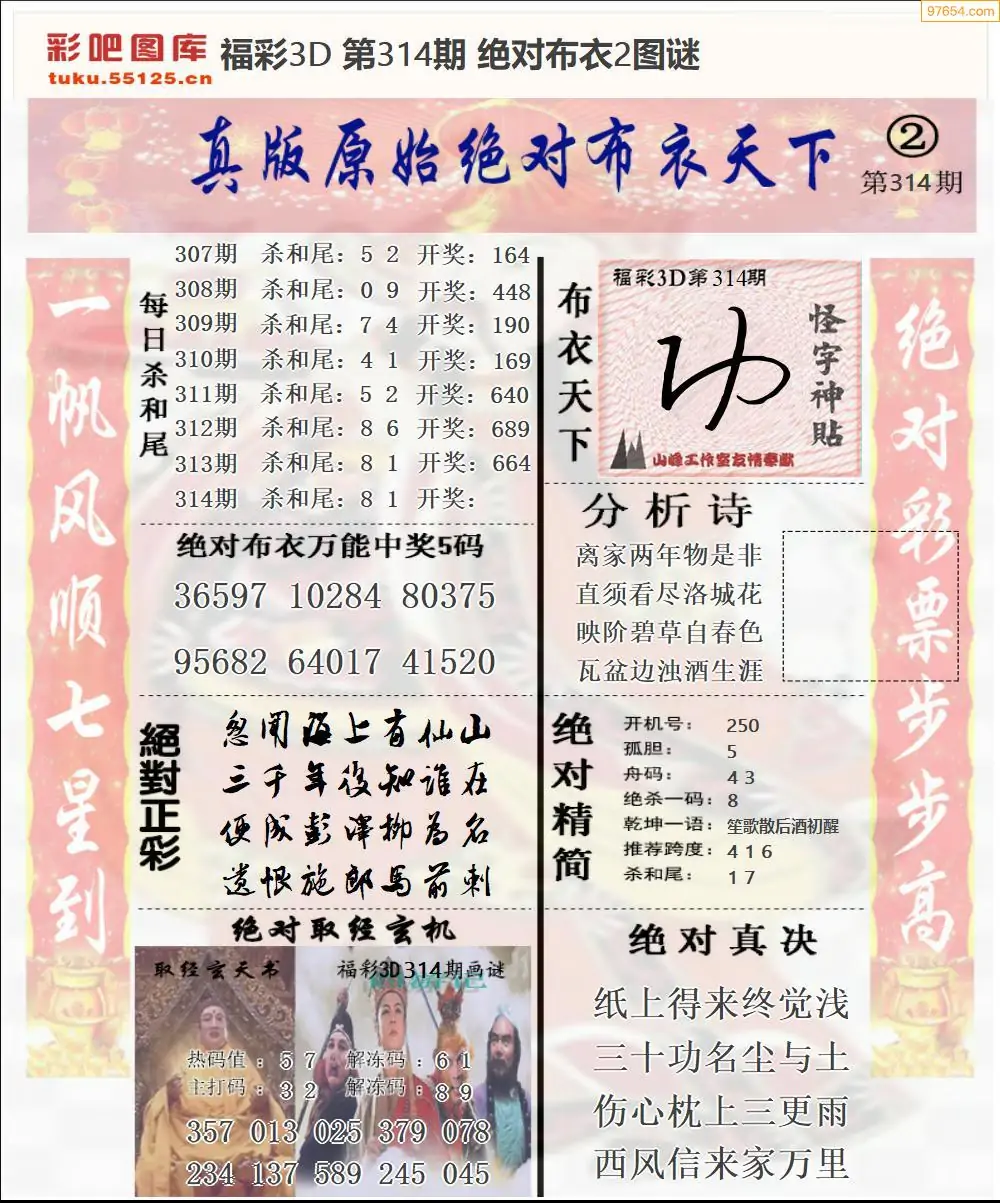 97654.com
彩吧图库
tuku.55125.cn
福彩3D 第314期 绝对布衣2图谜
真版原始绝对布衣天下
②
第314期
一帆风顺七星到
每日杀和尾
307期 杀和尾：5 2 开奖：164
308期 杀和尾：0 9 开奖：448
309期 杀和尾：7 4 开奖：190
310期 杀和尾：4 1 开奖：169
311期 杀和尾：5 2 开奖：640
312期 杀和尾：8 6 开奖：689
313期 杀和尾：8 1 开奖：664
314期 杀和尾：8 1 开奖：
绝对布衣万能中奖5码
36597 10284 80375
95682 64017 41520
絕對正彩
忽闻海上有仙山
三千年後知谁在
便成彭泽柳为名
遗恨施郎马前刺
绝对取经玄机
取经玄天书
福彩3D314期画谜
热码值：5 7 解冻码：6 1
主打码：3 2 解冻码：8 9
357 013 025 379 078
234 137 589 245 045
布衣天下
福彩3D第314期
怪字神贴
山峰工作室友情奉献
分析诗
离家两年物是非
直须看尽洛城花
映阶碧草自春色
瓦盆边浊酒生涯
绝对精简
开机号： 250
孤胆： 5
舟码： 4 3
绝杀一码：8
乾坤一语：笙歌散后酒初醒
推荐跨度：4 1 6
杀和尾： 1 7
绝对真决
纸上得来终觉浅
三十功名尘与土
伤心枕上三更雨
西风信来家万里
绝对彩票步步高